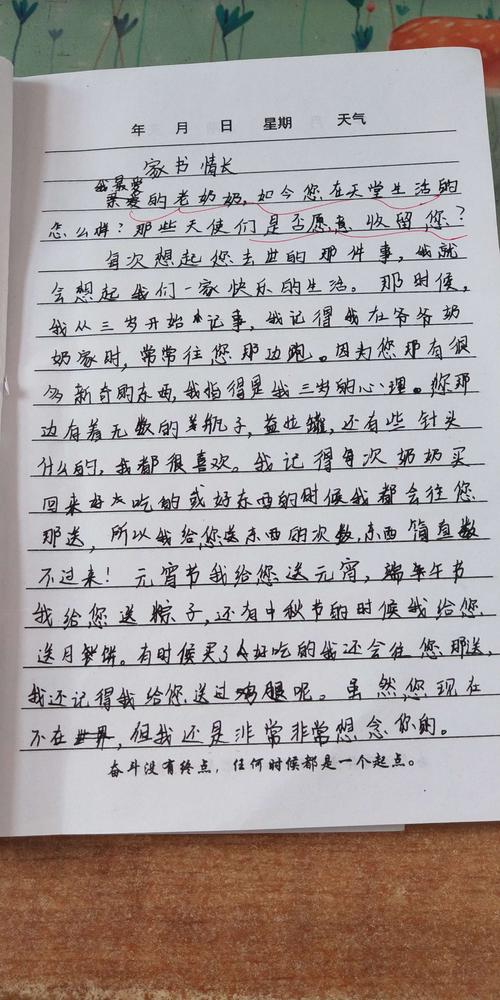 年 月 日 星期 天气
家书情长
我最爱
亲爱的老奶奶,如今您在天堂生活的
怎么样?那些天使们是否愿意收留您?
每次想起您去世的那件事,我就
会想起我们一家快乐的生活。那时候,
我从三岁开始记事,我记得我在爷爷奶
奶家时,常常往您那边跑。因为您那有很
多新奇的东西,我指得是我三岁的心理。您那
边有着无数的美瓶子,益母罐,还有些针头
什么的,我都很喜欢。我记得每次奶奶买
回来好点吃的或好东西的时候我都会往您
那送,所以我给您送东西的次数,东西简直数
不过来!元宵节我给您送元宵,端午节
我给您送粽子,还有中秋节的时候我给您
送月饼。有时候买了好吃的我还会往您那送,
我还记得我给您送过鸡腿呢。虽然您现在
不在世界,但我还是非常非常想念你的。
奋斗没有终点,任何时候都是一个起点。